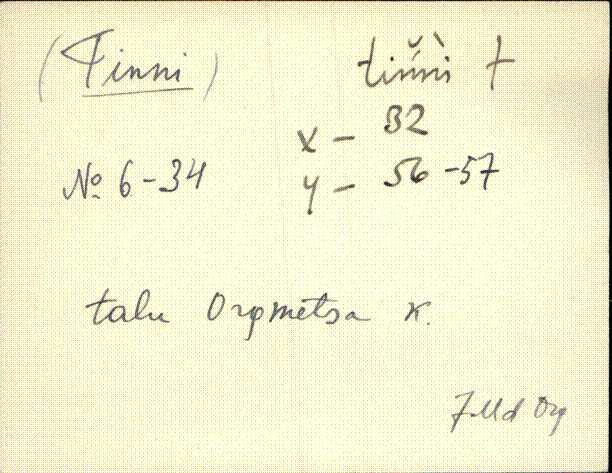 (Tinni) tinni t
x - 32
№ 6-34 y - 56-57
talu Orgmetsa k.
Org